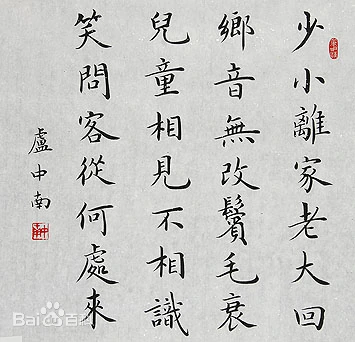 少小離家老大回
鄉音無改鬢毛衰
兒童相見不相識
笑問客從何處來
盧中南
Bai百科